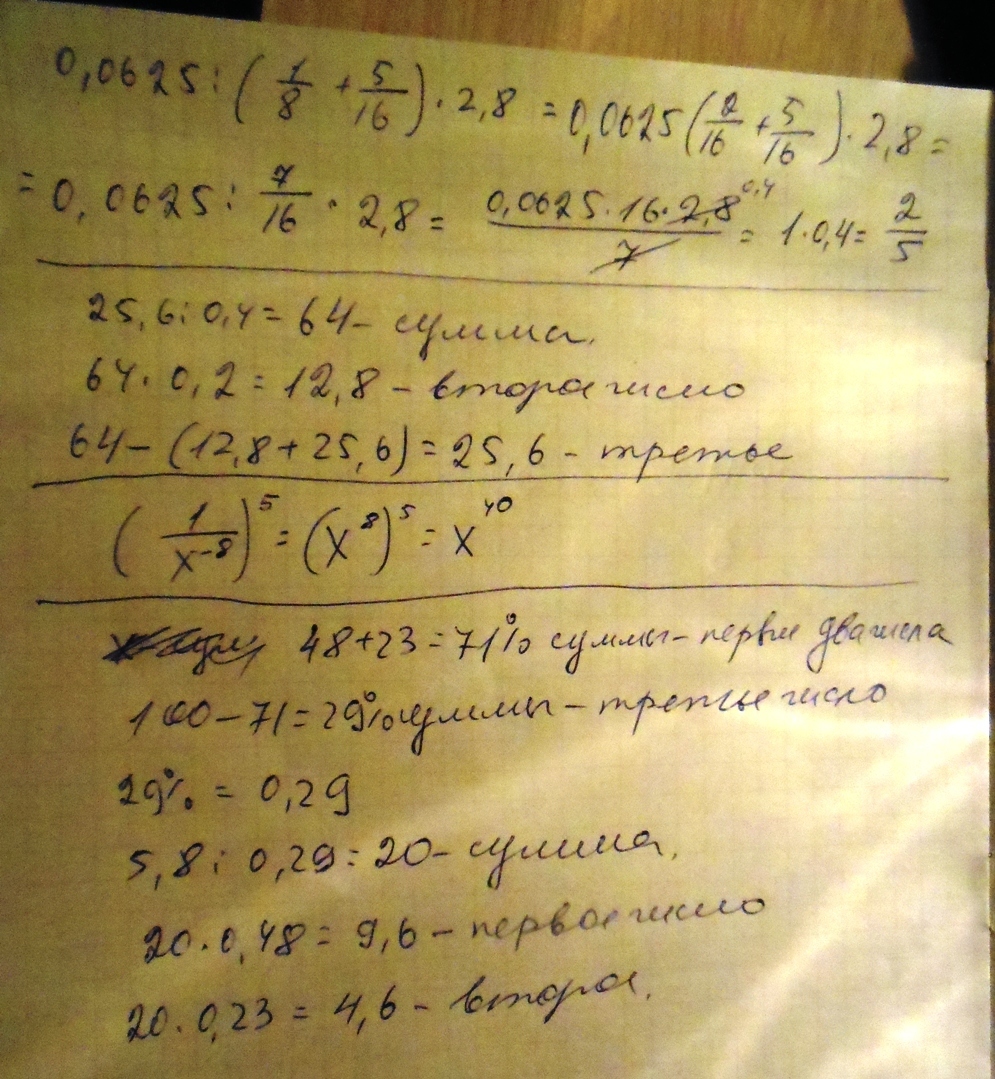 0,0625 : (1/8 + 5/16) · 2,8 = 0,0625 (2/16 + 5/16) · 2,8 =
= 0,0625 : 7/16 · 2,8 = 0,0625·16·2,8 0,4 / 7 = 1·0,4 = 2/5
25,6 : 0,4 = 64 - сумма.
64 · 0,2 = 12,8 - второе число
64 - (12,8 + 25,6) = 25,6 - третье
(1/x⁻⁸)⁵ = (x⁸)⁵ = x⁴⁰
48+23 = 71% суммы - первые два числа
100 - 71 = 29% суммы - третье число
29% = 0,29
5,8 : 0,29 = 20 - сумма.
20 · 0,48 = 9,6 - первое число
20 · 0,23 = 4,6 - второе.